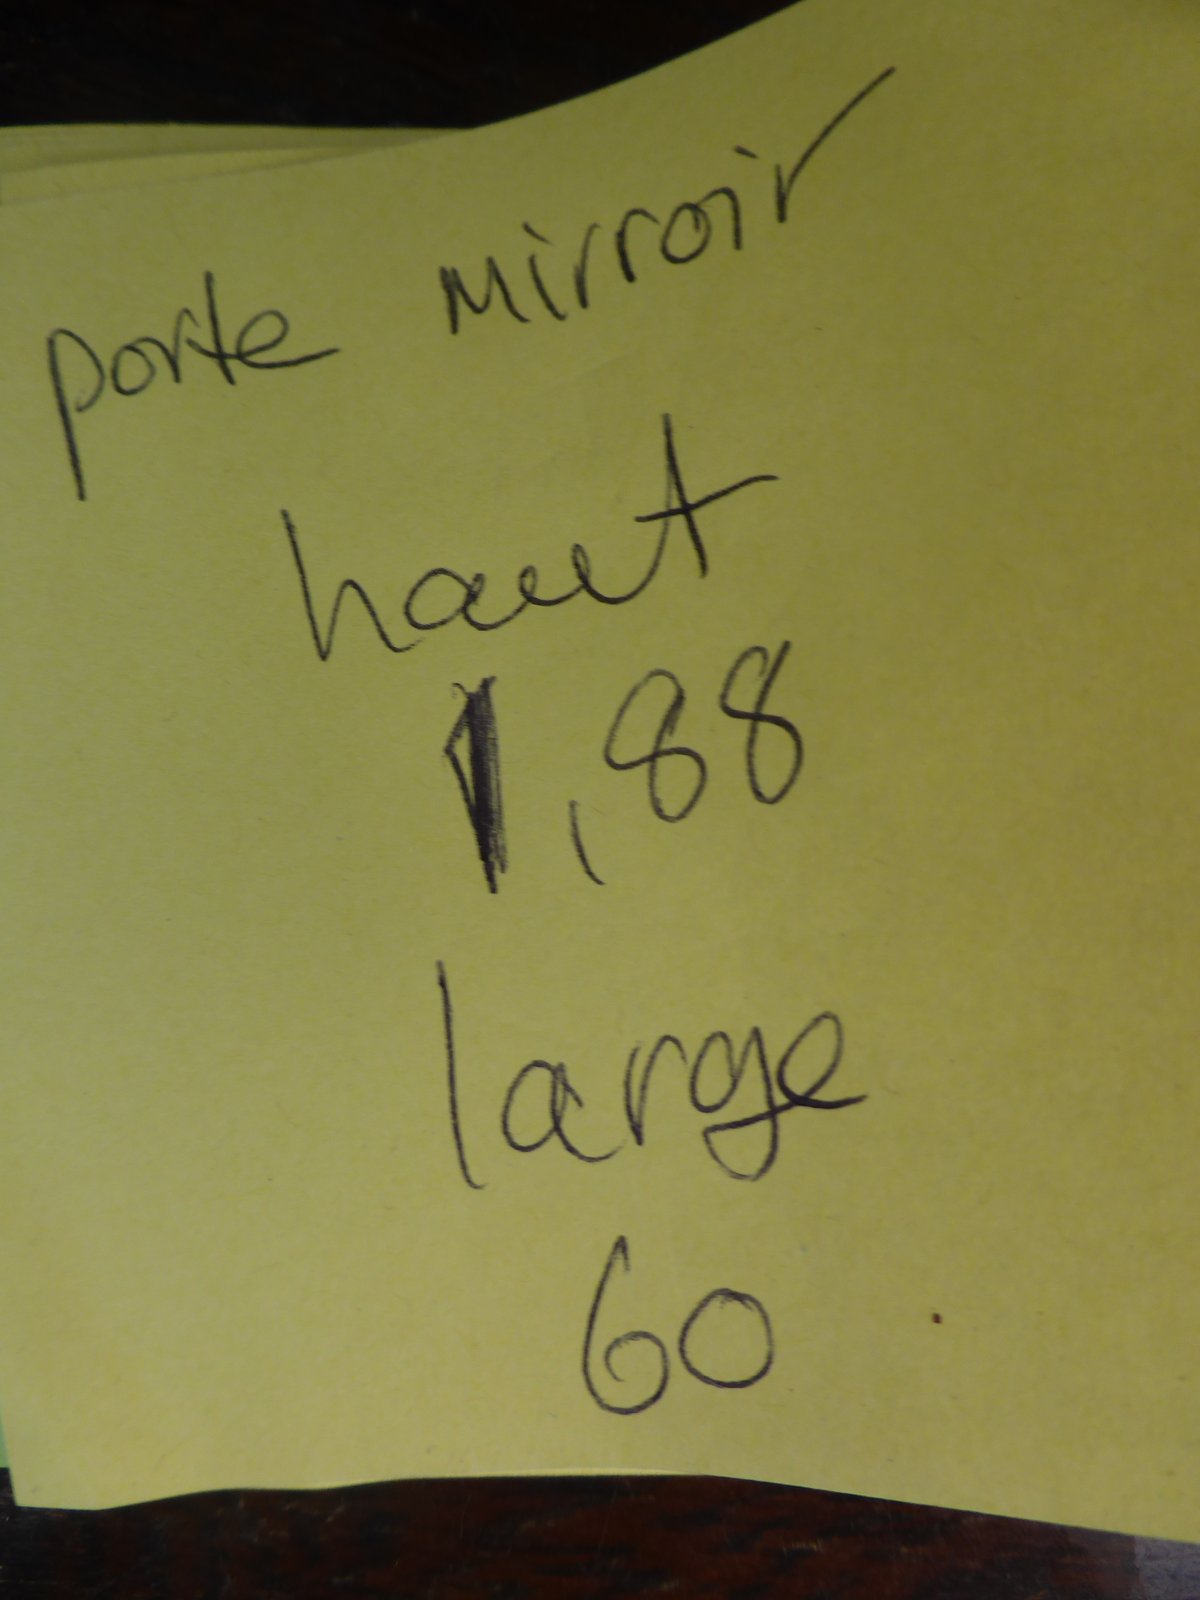 porte mirroir
haut
1,88
large
60